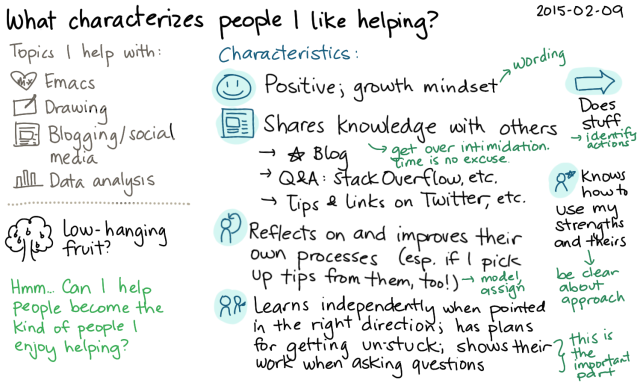 What characterizes people I like helping?
2015-02-09
Topics I help with:
Emacs
Drawing
Blogging/social
media
Data analysis
Low-hanging
fruit?
Hmm... Can I help
people become the
kind of people I
enjoy helping?
Characteristics:
Positive; growth mindset
wording
Shares knowledge with others
→ ☆ Blog
→ get over intimidation.
time is no excuse.
→ Q&A: Stack Overflow, etc.
→ Tips & links on Twitter, etc.
Reflects on and improves their
own processes (esp. if I pick
up tips from them, too!)
→ model,
assign
Learns independently when pointed
in the right direction; has plans
for getting un-stuck; shows their
work when asking questions
this is
the
important
part
Does
stuff
→ identify
actions
Knows
how to
use my
strengths
and theirs
be clear
about
approach